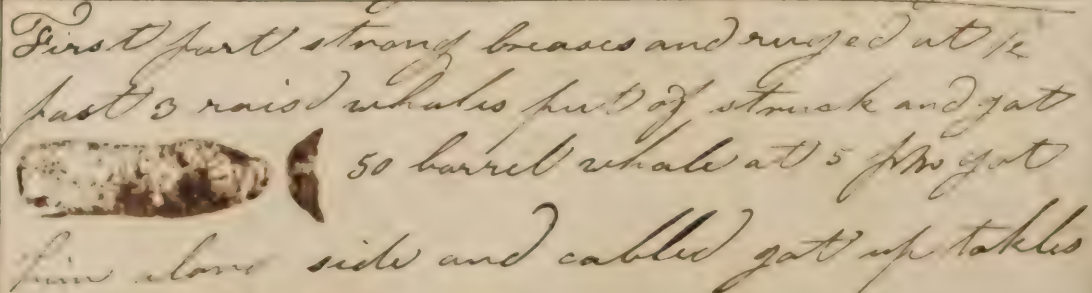 First part strong breases and ruged at 1/2
past 3 raisd whales put of struck and got
50 barrel whale at 5 pm got
him along side and cabled got up takles